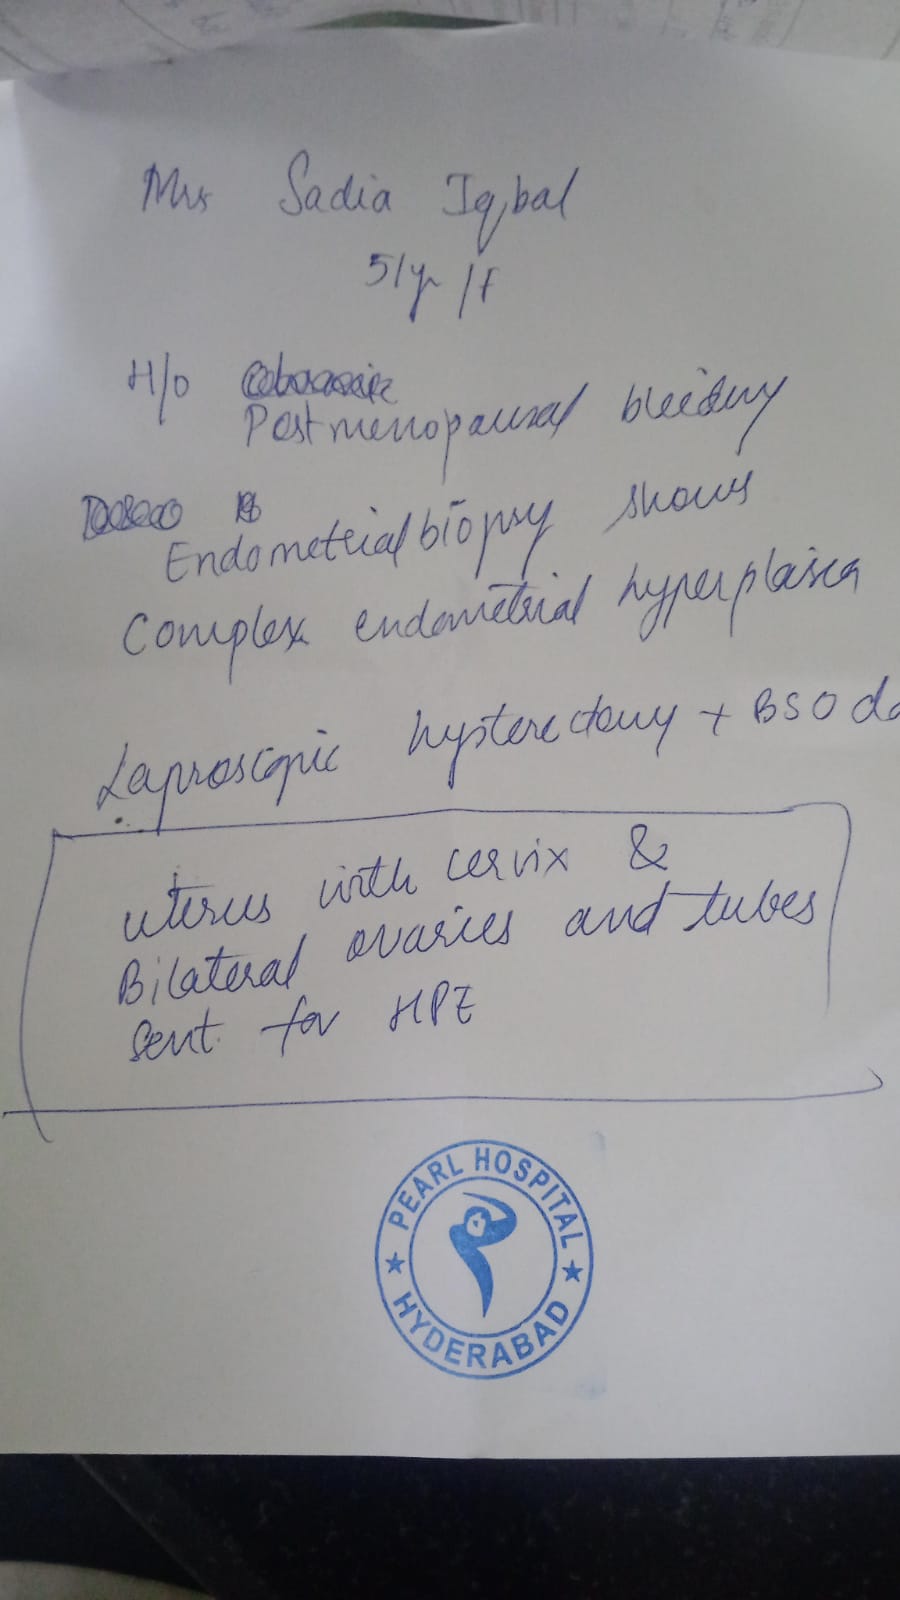 Mrs Sadia Iqbal
51yr/F
H/O
Postmenopausal bleeding
Endometrial biopsy shows
Complex endometrial hyperplasia
Laproscopic hysterectomy + BSO do
Uterus with cervix &
Bilateral ovaries and tubes
Sent for HPE
PEARL HOSPITAL
★ HYDERABAD ★